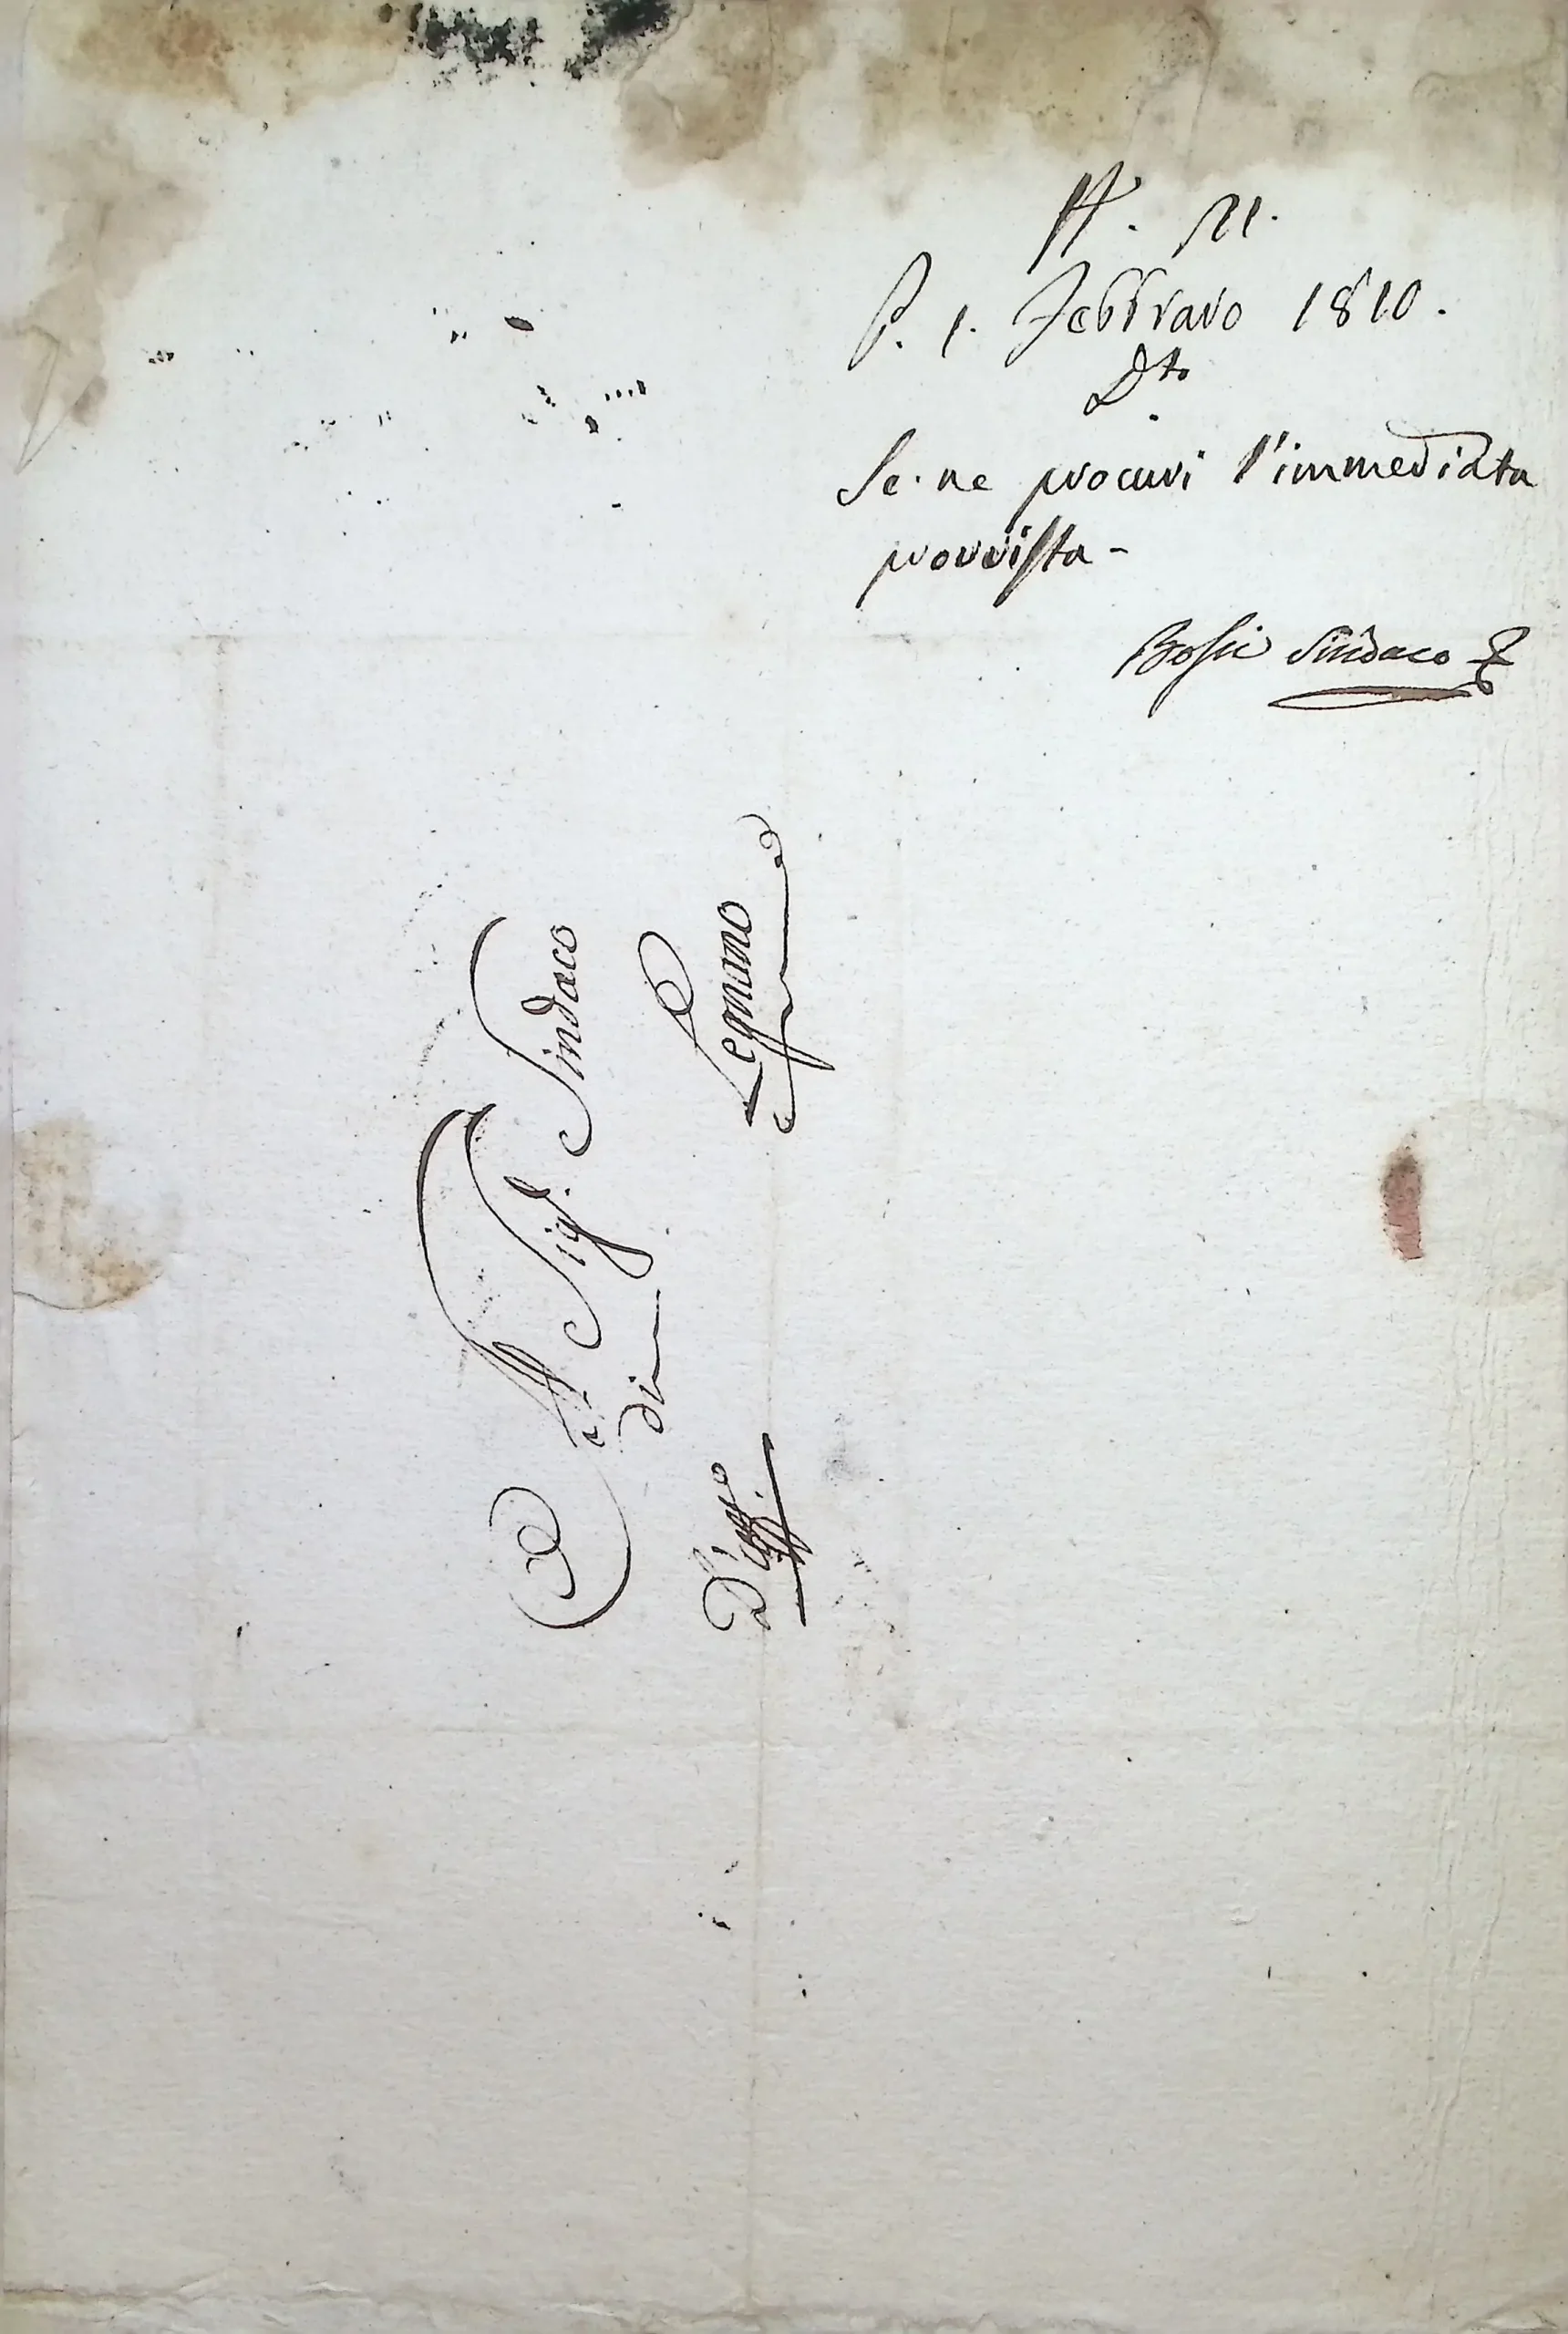 P. 1. Febbraro 1810.
Dto
Se ne procuri l'immediata
provvista -
Bossi Sindaco
Al Sigr. Sindaco
di
Legnano
D'Uffo.